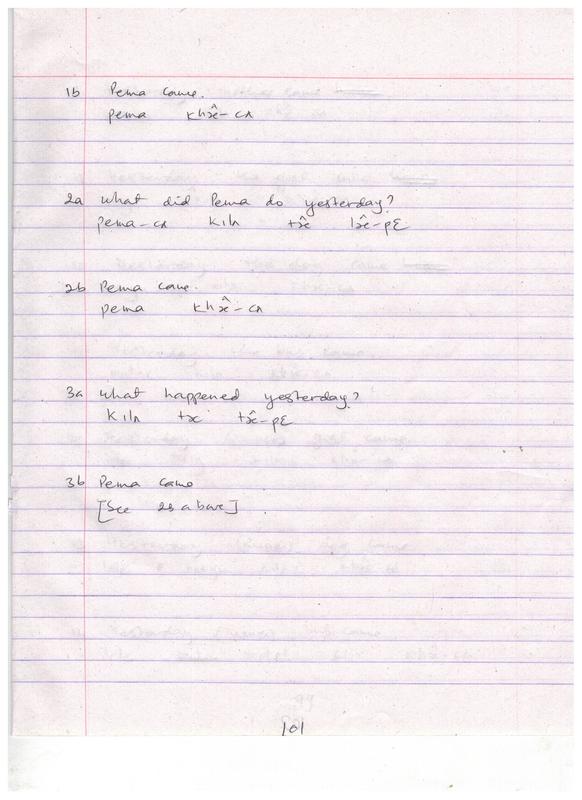 1b Pema came.
pema khæ̂-cʌ
2a What did Pema do yesterday?
pema-cʌ kilʌ tæ̂ læ̂-pɛ
2b Pema came.
pema khæ̂-cʌ
3a What happened yesterday?
kilʌ tæ tæ̂-pɛ
3b Pema came
[See as above]
101